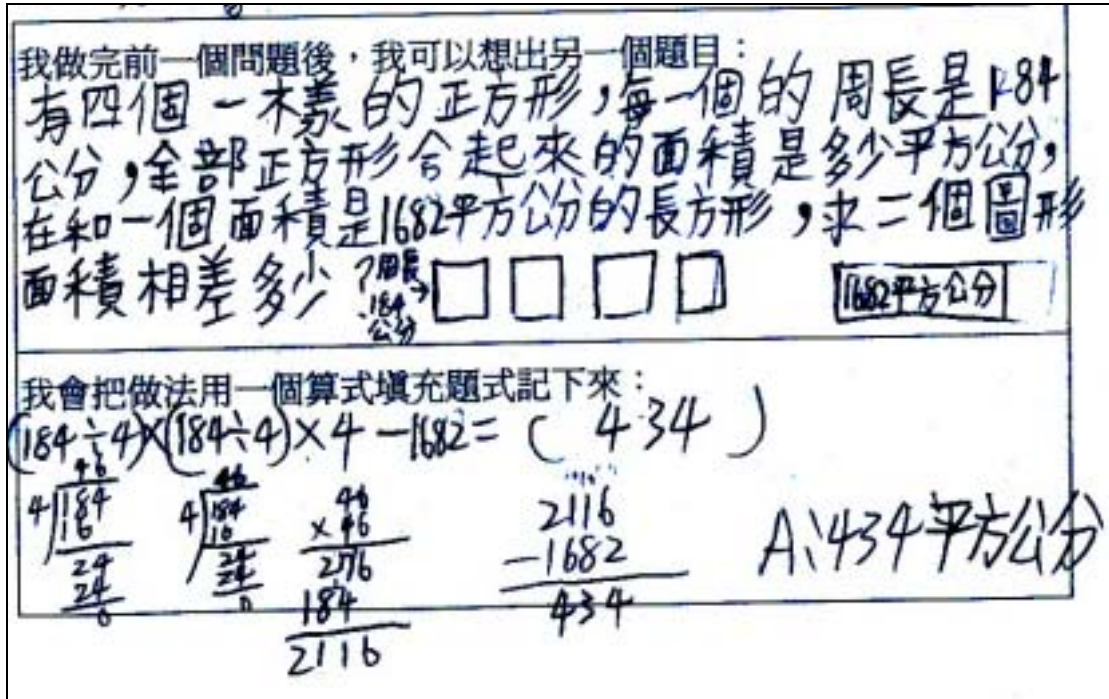 我做完前一個問題後，我可以想出另一個題目：
有四個一樣的正方形，每一個的周長是184
公分，全部正方形合起來的面積是多少平方公分，
在和一個面積是1682平方公分的長方形，求二個圖形
面積相差多少？
周長
184
公分
1682平方公分
我會把做法用一個算式填充題式記下來：
(184÷4)×(184÷4)×4－1682=（ 434 ）
46
4 184
16
24
24
0
46
4 184
16
24
24
0
46
×46
276
184
2116
2116
－1682
434
A：434平方公分